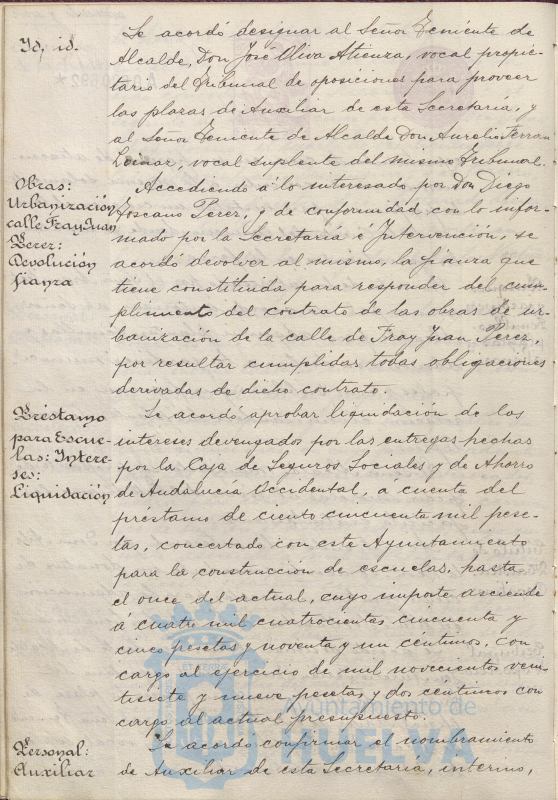 Id, id.
Se acordó designar al Señor Teniente de
Alcalde, Don José Oliva Atienza, vocal propie-
tario del Tribunal de oposiciones para proveer
las plazas de Auxiliar de esta Secretaria, y
al Señor Teniente de Alcalde Don Aurelio Ferran
Lomar, vocal suplente del mismo Tribunal.
Obras:
Urbanización
calle Fray Juan
Perez:
Devolución
fianza
Accediendo á lo interesado por Don Diego
Toscano Perez, y de conformidad con lo infor-
mado por la Secretaría é Intervención, se
acordó devolver al mismo, la fianza que
tiene constituida para responder del cum-
plimiento del contrato de las obras de ur-
banización de la calle de Fray Juan Perez,
por resultar cumplidas todas obligaciones
derivadas de dicho contrato.
Préstamo
para Escue-
las: Intere-
ses:
Liquidación
Se acordó aprobar liquidación de los
intereses devengados por las entregas hechas
por la Caja de Seguros Sociales y de Ahorro
de Andalucía Occidental, á cuenta del
préstamo de ciento cincuenta mil pese-
tas, concertado con este Ayuntamiento
para la construcción de escuelas, hasta
el once del actual, cuyo importe asciende
á cuatro mil cuatrocientas cincuenta y
cinco pesetas y noventa y un céntimos, con
cargo al ejercicio de mil novecientos vein-
tisiete y nueve pesetas y dos céntimos con
cargo al actual presupuesto.
Personal:
Auxiliar
Se acordó confirmar el nombramiento
de Auxiliar de esta Secretaria, interino,
Ayuntamiento de
HUELVA